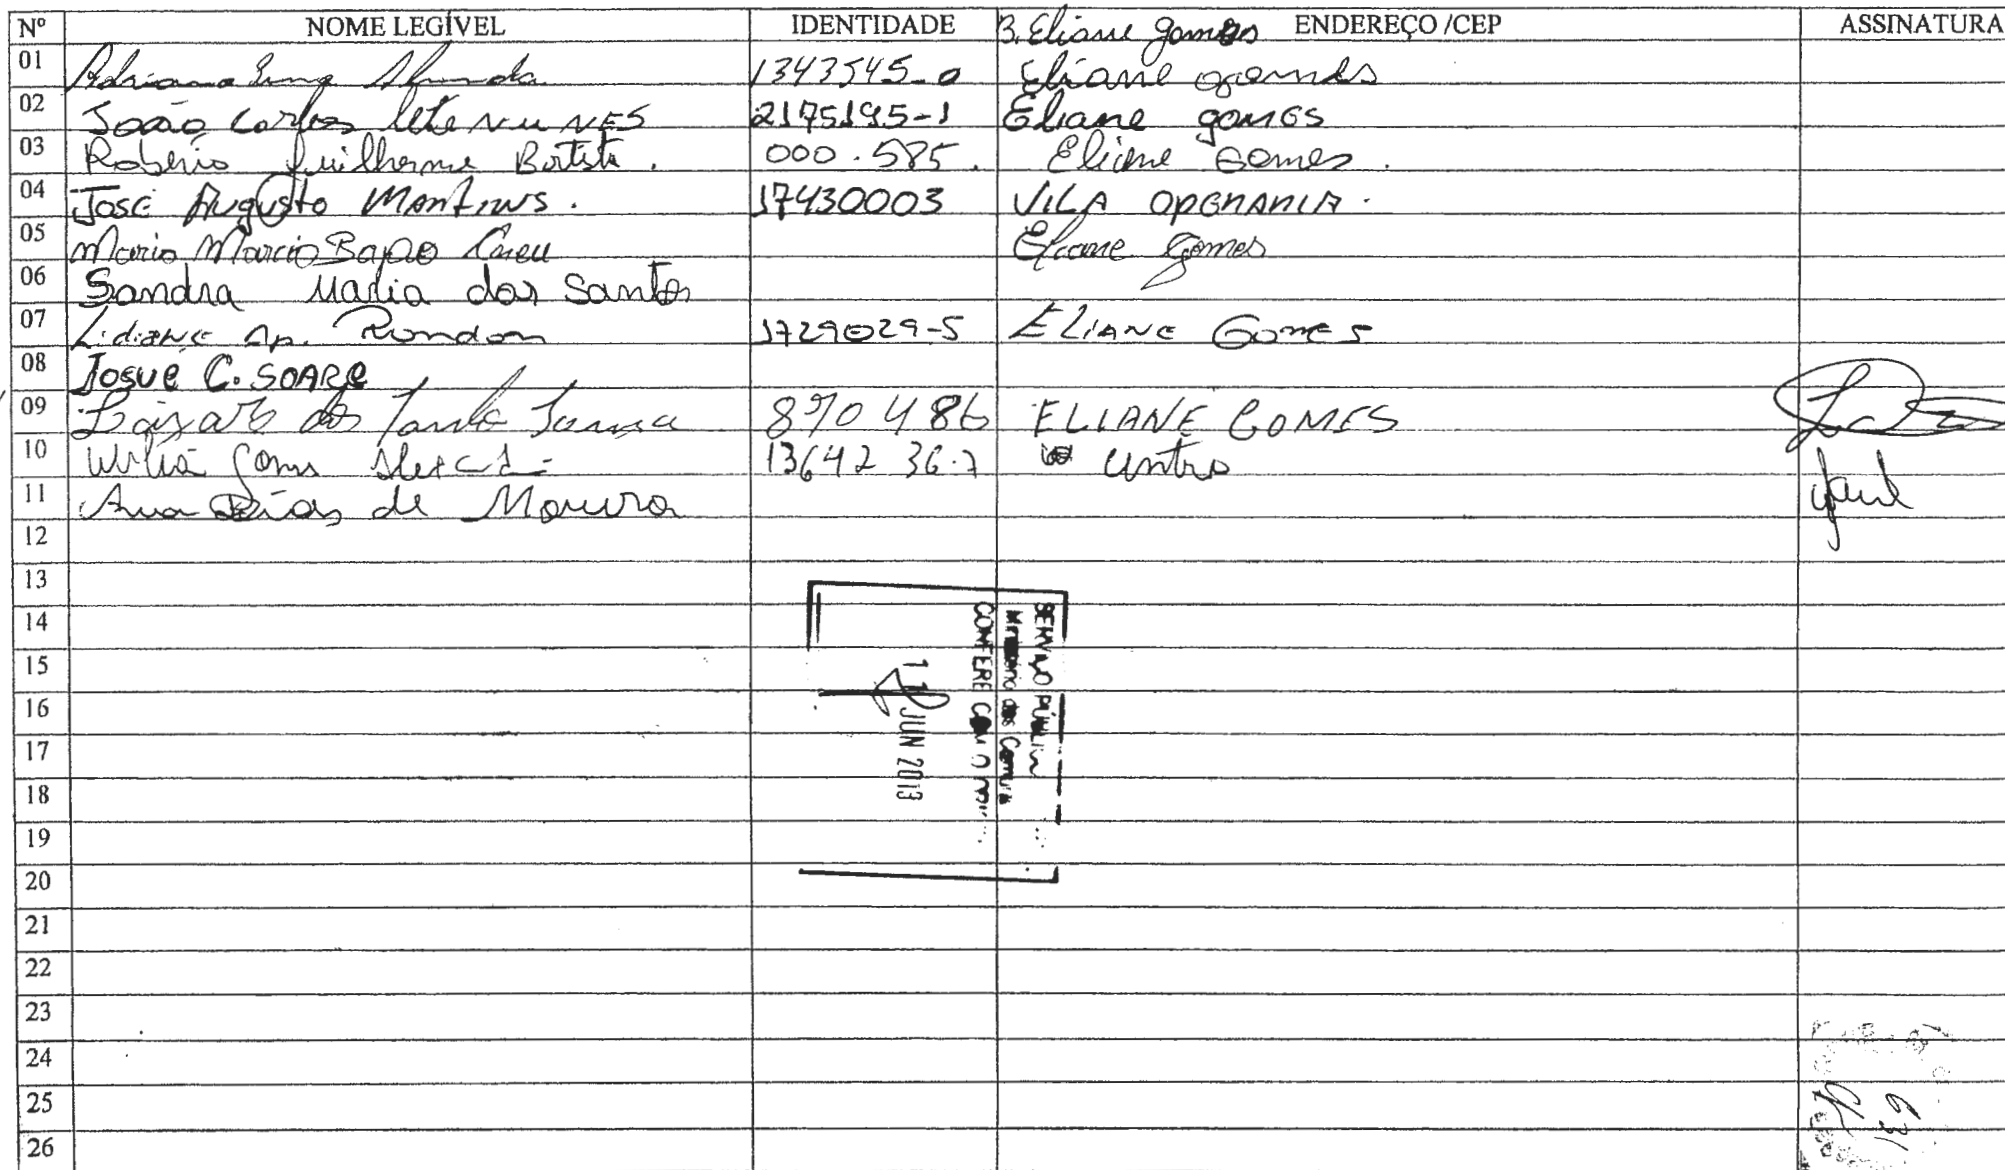 Nº NOME LEGÍVEL IDENTIDADE B. Eliane gomes ENDEREÇO /CEP ASSINATURA
01 Adriana 1343545-0 Eliane gomes
02 João Carlos leite NUNES 2175195-1 Eliane gomes
03 Robério Guilherme Batista. 000.585. Eliane Gomes.
04 José Augusto Martins. 17430003 VILA OPERARIA.
05 Mario Marcio Eliane Gomes
06 Sandra Maria dos Santos
07 Lidiane Ap. Rondon 1729029-5 ELIANE Gomes
08 Josué C. SOARe
09 dos 890486 ELIANE GOMES
10 1364236-7 Centro
11 Ana Dias de Moura
12
13
14
15
16
17
18
19
20
21
22
23
24
25
26
SERVIÇO PÚBLIC
CONFERE COM O
JUN 2013
631